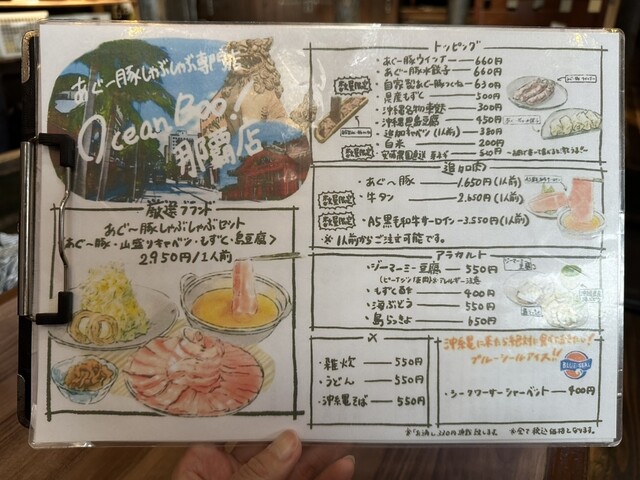 あぐ〜豚しゃぶしゃぶ専門店
Ocean Boo!
那覇店
厳選ブランド
あぐ〜豚しゃぶしゃぶセット
あぐ〜豚・山盛りキャベツ・もずく・島豆腐>
2950円/1人前
トッピング
・あぐー豚ウインナー 660円
・あぐー豚水餃子 660円
数量限定 ・自家製あぐー豚つくね 630円
・県産もずく 300円
・沖縄名物車麩 300円
・沖縄県島豆腐 450円
・追加キャベツ(1人前) 380円
・白米 200円
数量限定
追加肉
・あぐ〜豚 1.650円(1人前)
数量限定 ・牛タン 2.650円(1人前)
数量限定 ・A5黒毛和牛サーロイン 3.550円(1人前)
※1人前からご注文可能です。
アラカルト
・ジーマーミー豆腐 550円
・もずく酢 400円
・海ぶどう 550円
・島らっきょ 650円
〆
・雑炊 550円
・うどん 550円
・沖縄そば 550円
ブルーシールアイス!!
BLUE SEAL
・シークワーサーシャーベット 400円
※全て税込価格となります。